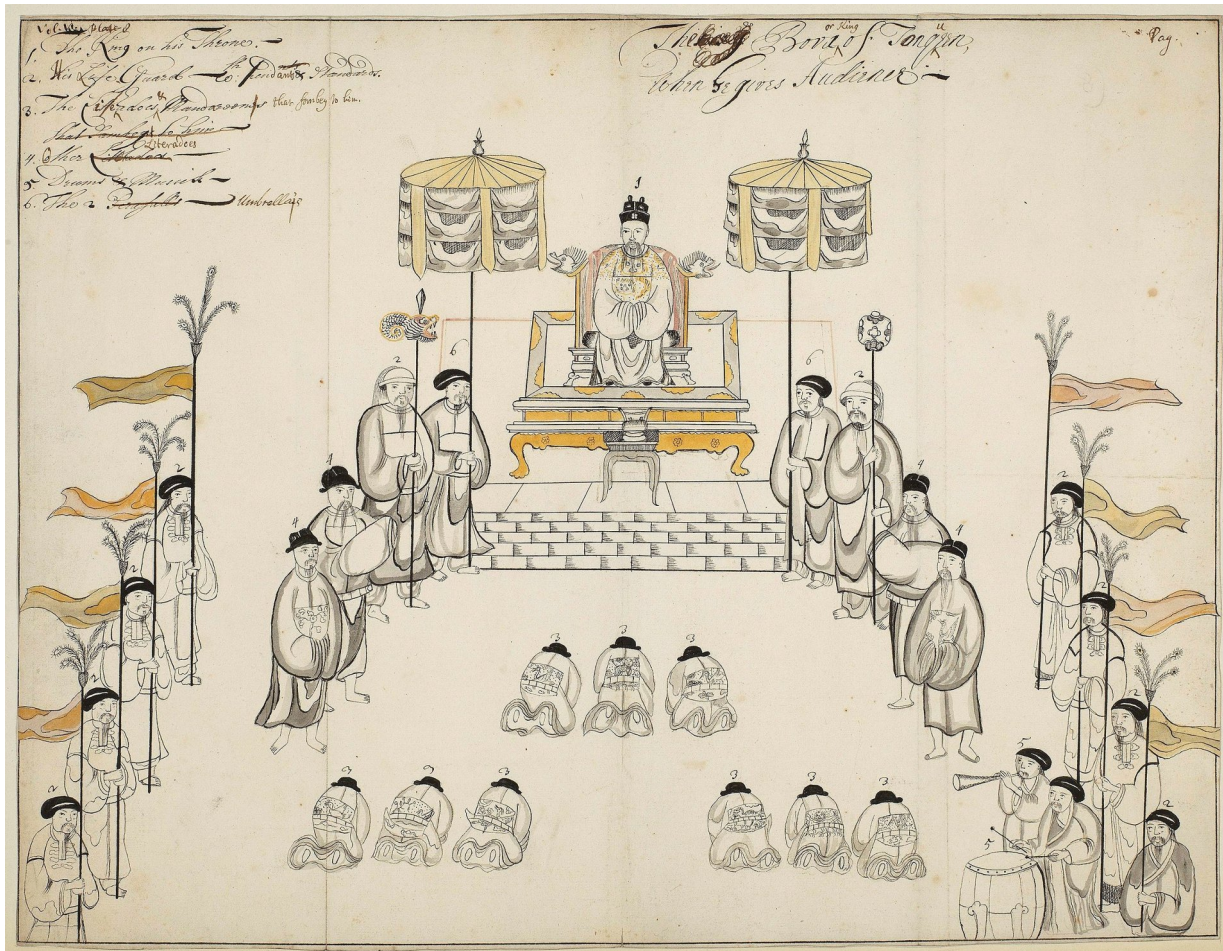 Vol. Plate 8
1, The King on his Throne.
2. His Life Guard Pendants Standards.
3. The Literadoes & Mandareens that sombey to him.
that sombey to him
4. Other Literadoes
5. Drums & Musick
6. The 2 Umbrellas
The Bova or King of Tonqueen,
When he gives Audience
Pag.
1
2
6
6
2
4
4
4
4
2
2
2
2
2
2
2
2
3
3
3
3
3
3
3
3
3
5
5